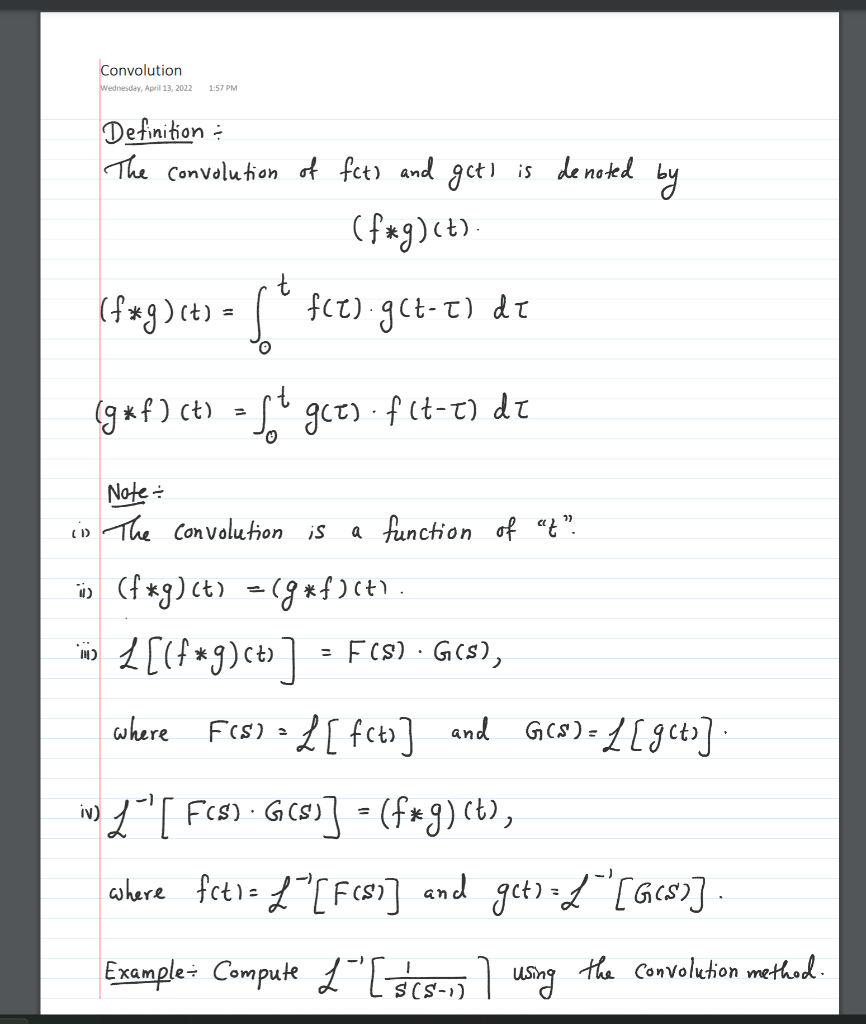 Convolution
Wednesday, April 13, 2022 1:57 PM
Definition ÷
The convolution of f(t) and g(t) is denoted by
(f*g)(t).
(f*g)(t) = ∫₀ᵗ f(τ)·g(t-τ) dτ
(g*f)(t) = ∫₀ᵗ g(τ)·f(t-τ) dτ
Note ÷
(i) The convolution is a function of "t".
ii) (f*g)(t) = (g*f)(t).
iii) ℒ[(f*g)(t)] = F(S)·G(S),
where F(S) = ℒ[f(t)] and G(S) = ℒ[g(t)].
iv) ℒ⁻¹[F(S)·G(S)] = (f*g)(t),
where f(t) = ℒ⁻¹[F(S)] and g(t) = ℒ⁻¹[G(S)].
Example ÷ Compute ℒ⁻¹[1/S(S-1)] using the convolution method.